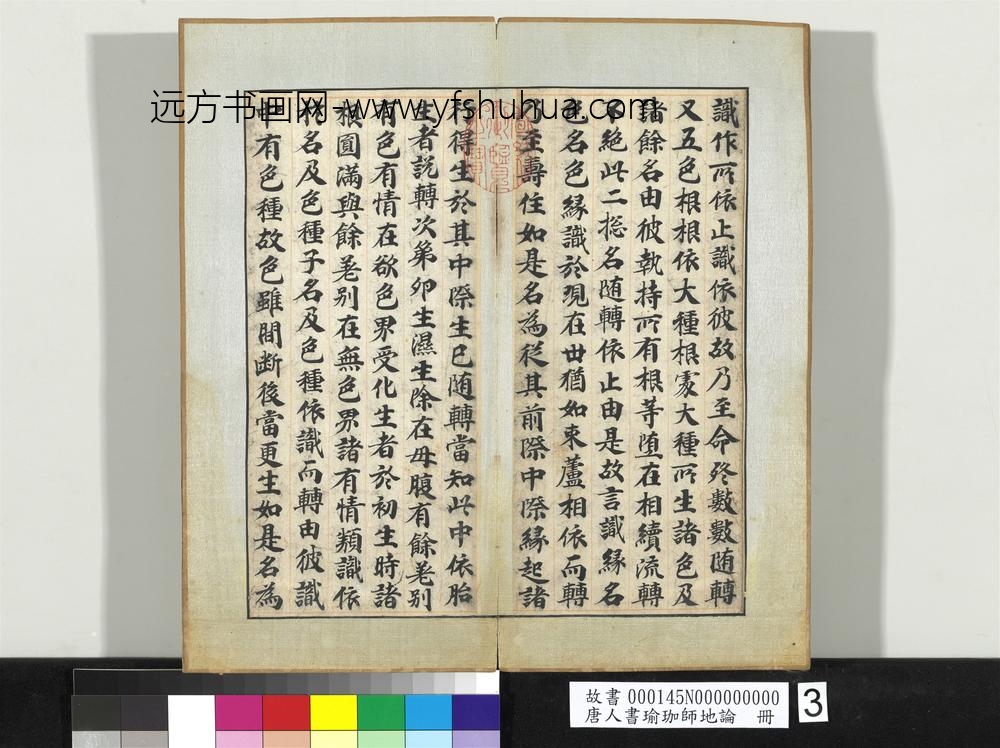 识作所依止識依彼故乃至命终數數随轉
又五色根根依大種根䖏大種所生諸色及
諸餘名由彼執持所有根等堕在相續流轉
不絶此二捴名随轉依止由是故言識縁名
色名色縁識於現在世猶如束蘆相依而轉
乃至壽住如是名為従其前際中際縁起諸
行得生於其中際生已随轉當知此中依胎
生者說轉次第卵生濕生除在母腹有餘差别
有色有情在欲色界受化生者於初生時諸
根圓滿與餘差别在無色界諸有情類識依
於名及色種子名及色種依識而轉由彼識
中有色種故色雖間断後當更生如是名為
远方书画网-www.yfshuhua.com
故書 000145N000000000
唐人書瑜珈師地論 冊
3